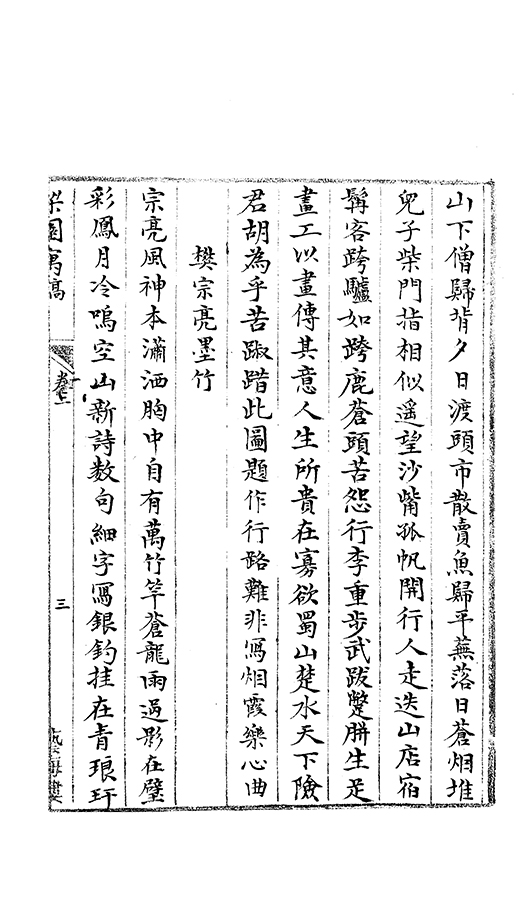 山下僧歸背夕日渡頭市散賣魚歸平蕪落日蒼烟堆
兒子柴門指相似遥望沙觜孤帆開行人走迭山店宿
髯客跨驢如跨鹿蒼頭苦怨行李重步武跋躄胼生足
畫工以畫傳其意人生所貴在寡欲蜀山楚水天下險
君胡為乎苦踧踖此圖題作行路難非寫烟霞樂心曲
樊宗亮墨竹
宗亮風神本瀟洒胸中自有萬竹竿蒼龍雨過影在壁
彩鳳月冷鳴空山新詩数句細字寫銀鈎挂在青琅玕
寓稿
卷三
三